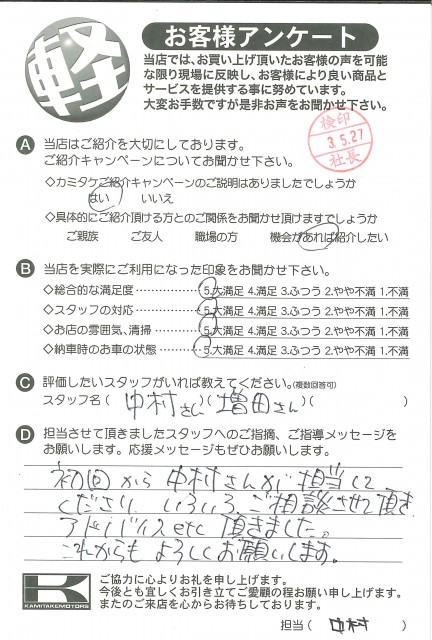 軽
お客様アンケート
当店では、お買い上げ頂いたお客様の声を可能
な限り現場に反映し、お客様により良い商品と
サービスを提供する事に努めています。
大変お手数ですが是非お声をお聞かせ下さい。
検印
3.5.27
社長
A 当店はご紹介を大切にしております。
ご紹介キャンペーンについてお聞かせ下さい。
◇カミタケご紹介キャンペーンのご説明はありましたでしょうか
はい いいえ
◇具体的にご紹介頂ける方とのご関係をお聞かせ頂けますでしょうか
ご親族 ご友人 職場の方 機会があれば紹介したい
B 当店を実際にご利用になった印象をお聞かせ下さい。
◇総合的な満足度 5.大満足 4.満足 3.ふつう 2.やや不満 1.不満
◇スタッフの対応 5.大満足 4.満足 3.ふつう 2.やや不満 1.不満
◇お店の雰囲気、清掃 5.大満足 4.満足 3.ふつう 2.やや不満 1.不満
◇納車時のお車の状態 5.大満足 4.満足 3.ふつう 2.やや不満 1.不満
C 評価したいスタッフがいれば教えてください。(複数回答可)
スタッフ名( 中村さん )( 増田さん )( )
D 担当させて頂きましたスタッフへのご指摘、ご指導メッセージを
お願いします。応援メッセージもぜひお願いします。
初回から中村さんが担当して
ください いろいろ ご相談させて頂き
アドバイスetc 頂きました。
これからも よろしくお願いします。
K
KAMITAKEMOTORS
ご協力に心よりお礼を申し上げます。
今後とも宜しくお引き立てご愛顧の程お願い申し上げます。
またのご来店を心からお待ちしております。
担当( 中村 )